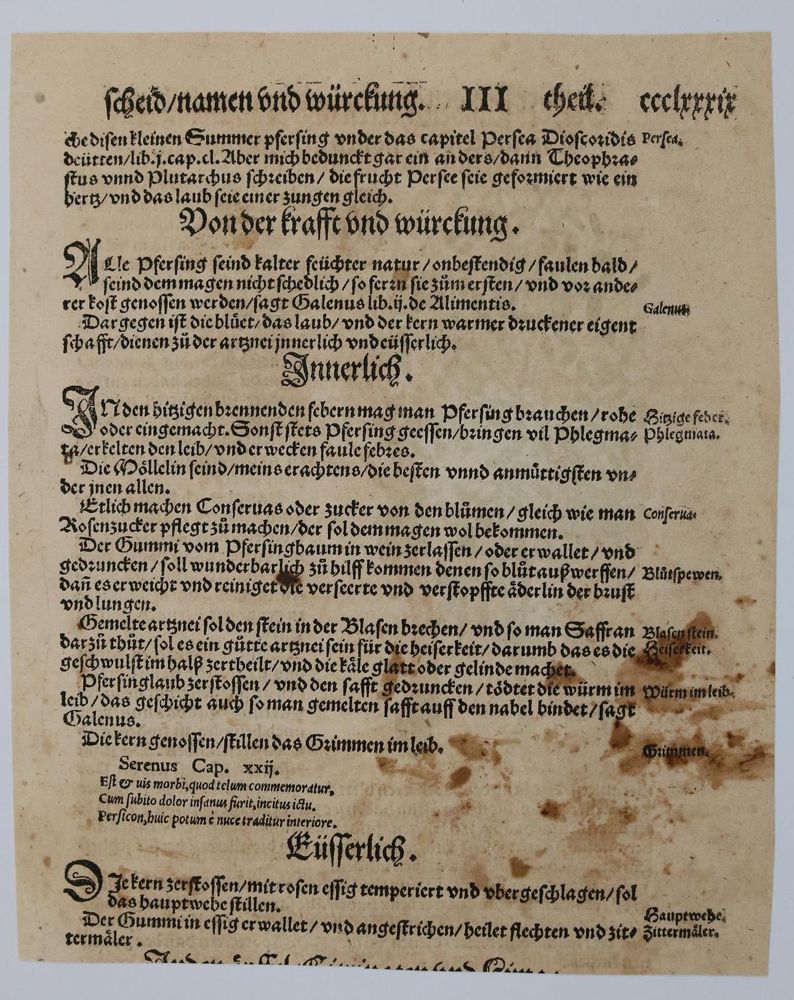 scheid/namen vnd würckung. III theil. ccclxxxix
che disen kleinen Summer pfersing vnder das capitel Persea Dioscoridis Persea.
deütten/lib.j.cap.cl. Aber mich bedunckt gar ein anders/dann Theophra⸗
stus vnnd Plutarchus schreiben/ die frucht Persee seie geformiert wie ein
hertz/vnd das laub seie einer zungen gleich.
Von der krafft vnd würckung.
ALle Pfersing seind kalter feüchter natur/onbestendig/faulen bald/
seind dem magen nicht schedlich/so ferrn sie zům ersten/ vnd vor ande⸗
rer kost genossen werden/sagt Galenus lib.ij.de Alimentis. Galenus
Dargegen ist die blüet/das laub/ vnd der kern warmer druckener eigent
schafft/dienen zů der artznei jnnerlich vnd eüsserlich.
Innerlich.
IN den hitzigen brennenden febern mag man Pfersing brauchen/rohe Hitzige feber.
oder eingemacht. Sonst stets Pfersing geessen/bringen vil Phlegma⸗ Phlegmata.
ta/erkelten den leib/vnd erwecken faule febres.
Die Möllelin seind/meins erachtens/die besten vnnd anmüttigsten vn⸗
der jnen allen.
Etlich machen Conseruas oder zucker von den blůmen/ gleich wie man Conserua.
Rosenzucker pflegt zů machen/der sol dem magen wol bekommen.
Der Gummi vom Pfersingbaum in wein zerlassen/oder erwallet/ vnd
gedruncken/soll wunderbarlich zů hilff kommen denen so blůt außwerffen/ Blůtspewen.
dañ es erweicht vnd reiniget die verseerte vnd verstopffte äderlin der brust
vnd lungen.
Gemelte artznei sol den stein in der Blasen brechen/ vnd so man Saffran Blasen stein.
darzů thůt/sol es ein gůtte artznei sein für die heiserkeit/darumb das es die Heiserkeit.
geschwulst im halß zertheilt/vnd die käle glatt oder gelinde machet.
Pfersinglaub zerstossen/ vnd den safft gedruncken/ tödtet die würm im Würm im leib.
leib/das geschicht auch so man gemelten safft auff den nabel bindet/sagt
Galenus.
Die kern genossen/stillen das Grimmen im leib. Grimmen.
Serenus Cap. xxij.
Est & uis morbi,quod telum commemoratur,
Cum subito dolor insanus furit,incitus ictu.
Persicon,huic potum è nuce traditur interiore.
Eüsserlich.
DJe kern zerstossen/mit rosen essig temperiert vnd vbergeschlagen/sol
das hauptwehe stillen. Hauptwehe.
Der Gummi in essig erwallet/ vnd angestrichen/heilet flechten vnd zit⸗ Zittermäler.
termäler.